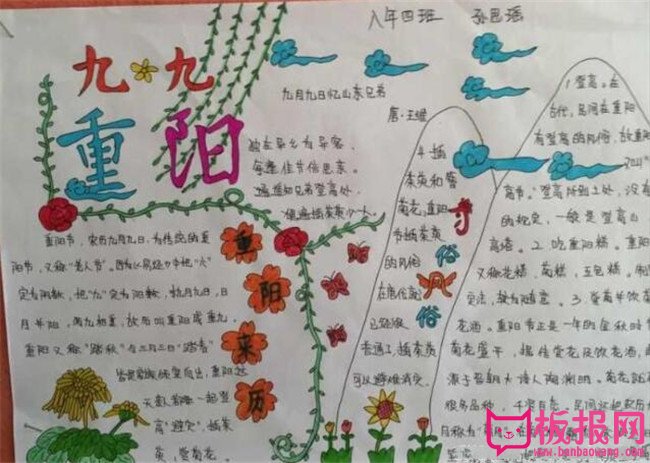 八年四班 孙邑瑶
九九
重阳
九月九日忆山东兄弟
唐·王维
独在异乡为异客,
每逢佳节倍思亲。
遥知兄弟登高处,
便遍插茱萸少一人。
重阳来历
重阳节,农历九月九日,为传统的重
阳节,又称"老人节"。因为《易经》中把"六"
定为阴数,把"九"定为阳数,九月九日,日
月并阳,两九相重,故而叫重阳或重九。
重阳又称"踏秋"与三月三日"踏春"
皆是家族倾室而出,重阳这
天数都要一起登
高"避灾",插茱
萸,赏菊花。
节俗风俗
4 插
茱萸和簪
菊花,重阳
节插茱萸
的风俗
在唐代就
已经很
普遍了,插茱萸
可以避难消灾,
1 登高。在
古代,民间在重阳
有登高的风俗,故重阳
高节。登高所到之处,没有
的规定,一般是登高山
高塔。2.吃重阳糕。重阳
又称花糕,菊糕,五色糕。制
定法,较为随意。3.赏菊并饮菊
花酒。重阳节正是一年的金秋时节
菊花盛开,据传赏花及饮花酒,起
源于晋朝大诗人陶渊明。菊花
很多品种,千姿百态。民间还把农历
月称为
板报网
www.banbaowang.com